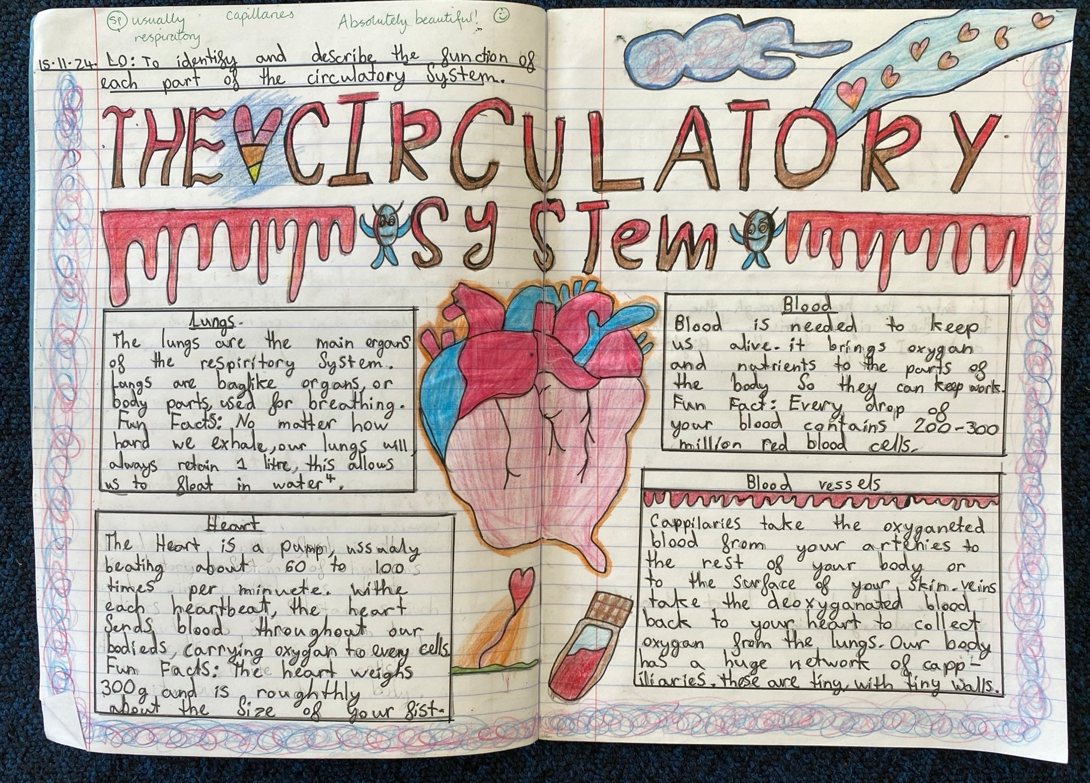 Sp usually
capillaries
Absolutely beautiful!
respiratory
15-11-24 LO: To identify and describe the function of
each part of the circulatory System.
THE CIRCULATORY
SySTem
Lungs.
The lungs are the main organs
of the respiritory System.
Langs are baglike organs, or
body parts, used for breathing.
Fun Facts: No matter how
hard we exhale, our lungs will
always retain 1 litre, this allows
us to float in water".
Heart
The Heart is a pump, ussualy
beating about 60 to 100
times per minuete. withe
each heartbeat, the heart
Sends blood throughout our
bodieds, carrying oxygan to every cells.
Fun Facts: the heart weighs
300g and is roughthly
about the Size of your fist.
Blood
Blood is needed to keep
us alive. it brings oxygan
and nutrients to the parts of
the body So they can keep work.
Fun Fact: Every drop of
your blood contains 200-300
million red blood cells.
Blood vessels
Cappilaries take the oxyganeted
blood from your arteries to
the rest of your body or
to the surface of your skin. veins
take the deoxyganated blood
back to your heart to collect
oxygan from the lungs. Our body
has a huge network of capp-
iliaries. these are tiny with tiny walls.